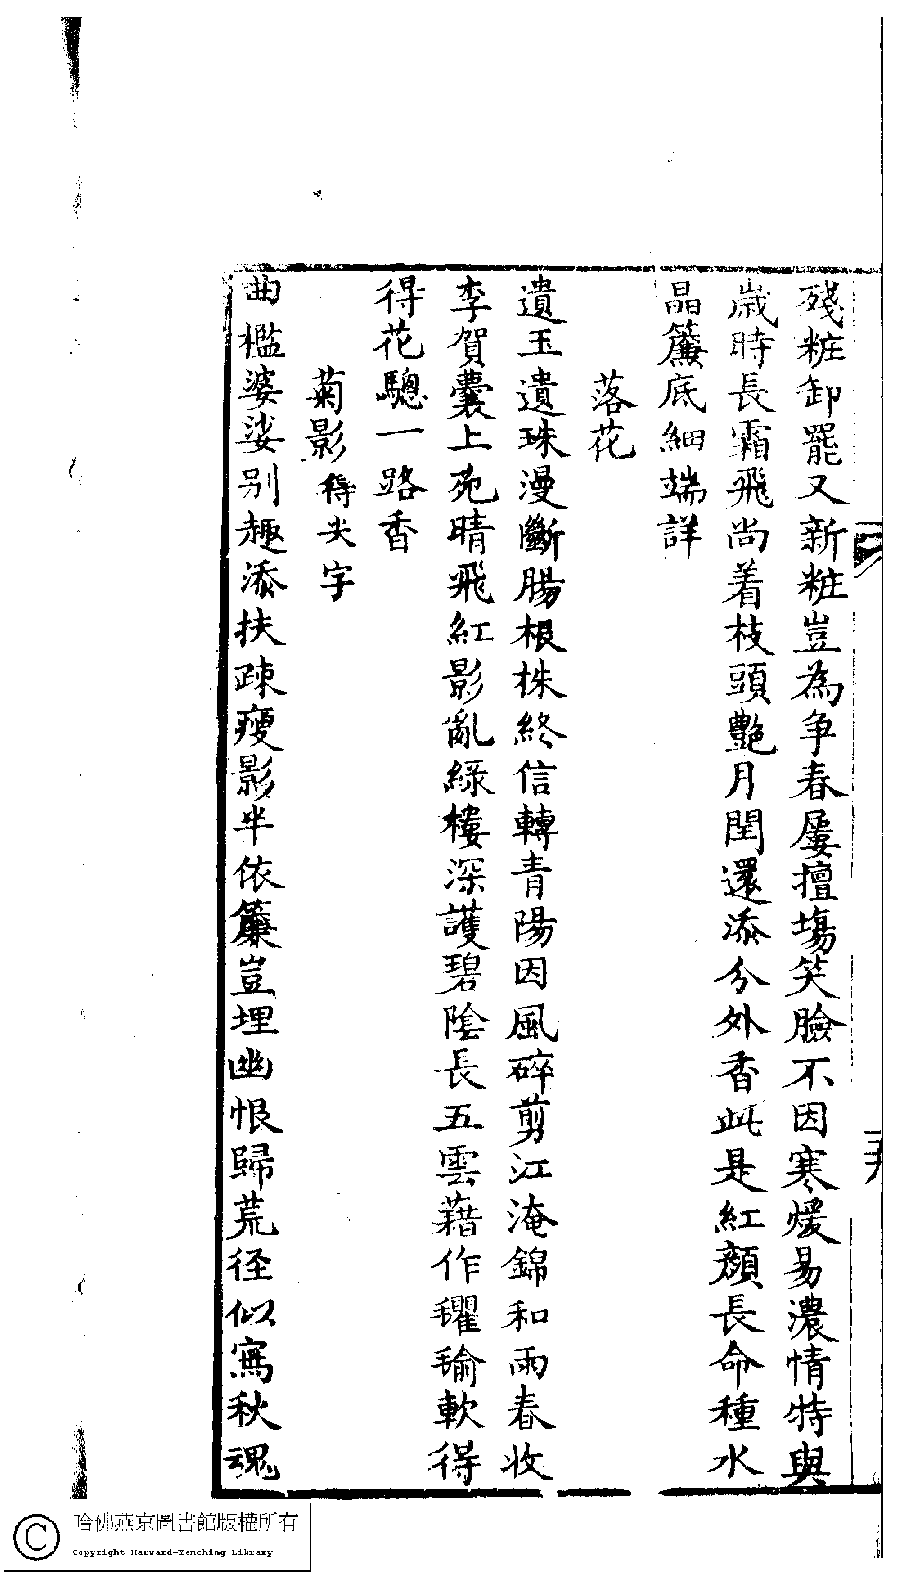 殘粧卸罷又新粧豈為争春屢擅塲笑臉不因寒煖易濃情特與
歲時長霜飛尚着枝頭艷月閏還添分外香此是紅顏長命種水
晶簾底細端詳
落花
遺玉遺珠漫斷腸根株終信轉青陽因風碎剪江淹錦和雨春收
李賀囊上苑晴飛紅影亂綠樓深護碧陰長五雲藉作氍毹軟得
得花驄一路香
菊影得尖字
曲檻婆娑别趣添扶疎瘦影半依簾豈埋幽恨歸荒径似寫秋魂
哈佛燕京圖書館版權所有
Copyright Harvard-Yenching Library